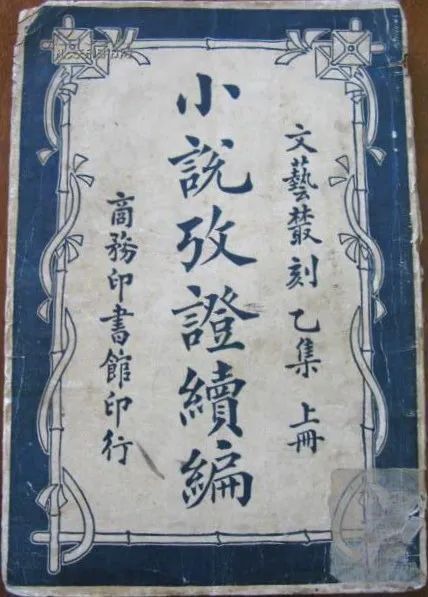 文藝叢刻 乙集 上冊
小說攷證續編
商務印書館印行